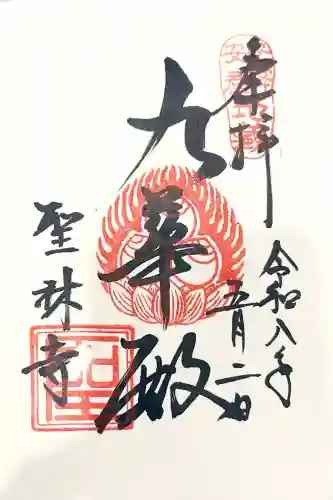 奉拝
九華殿
令和八年
五月二日
聖林寺